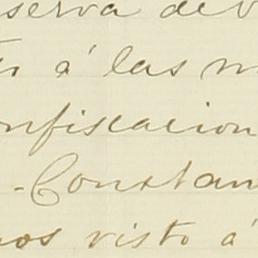 serva deb
to á las m
onfiscacion
- Constan
nos visto á